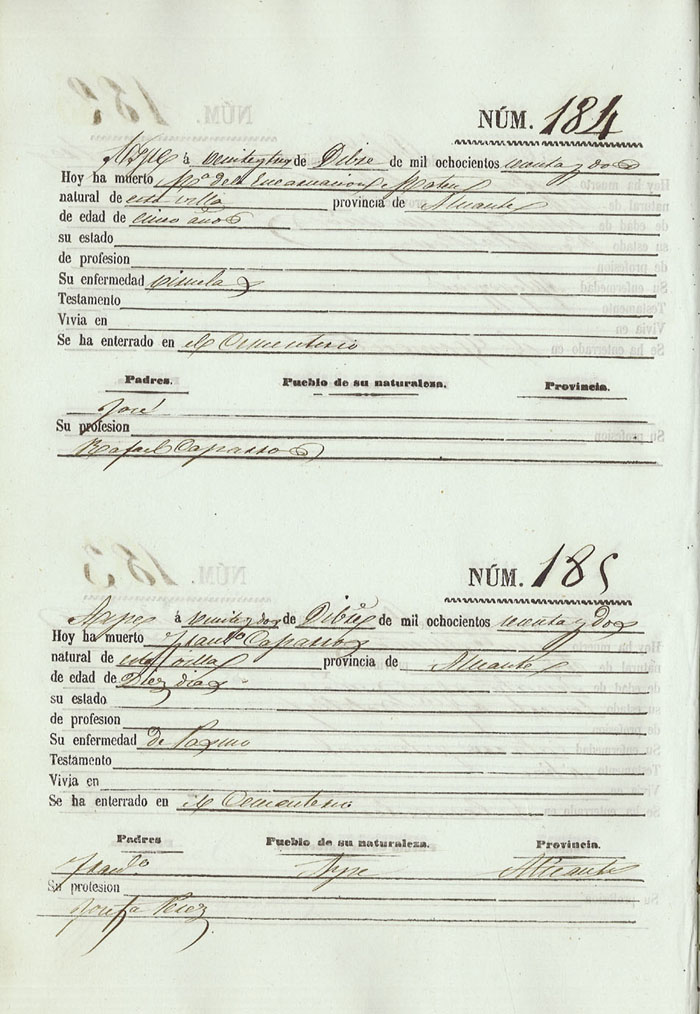 NÚM. 184
Aspe á de Dbre de mil ochocientos
Hoy ha muerto Mª de la Encarnacion Mateu
natural de esta villa provincia de Alicante
de edad de cinco años
su estado
de profesion
Su enfermedad viruela
Testamento
Vivia en
Se ha enterrado en el Cementerio
Padres. Pueblo de su naturaleza. Provincia.
José
Su profesion
Rafael Caparros
NÚM. 185
Aspe á veinte y dos de Dibre de mil ochocientos
Hoy ha muerto Caparros
natural de esta villa provincia de Alicante
de edad de Diez dias
su estado
de profesion
Su enfermedad de
Testamento
Vivia en
Se ha enterrado en el Cementerio
Padres Pueblo de su naturaleza. Provincia.
Aspe Alicante
Su profesion
Josefa Perez